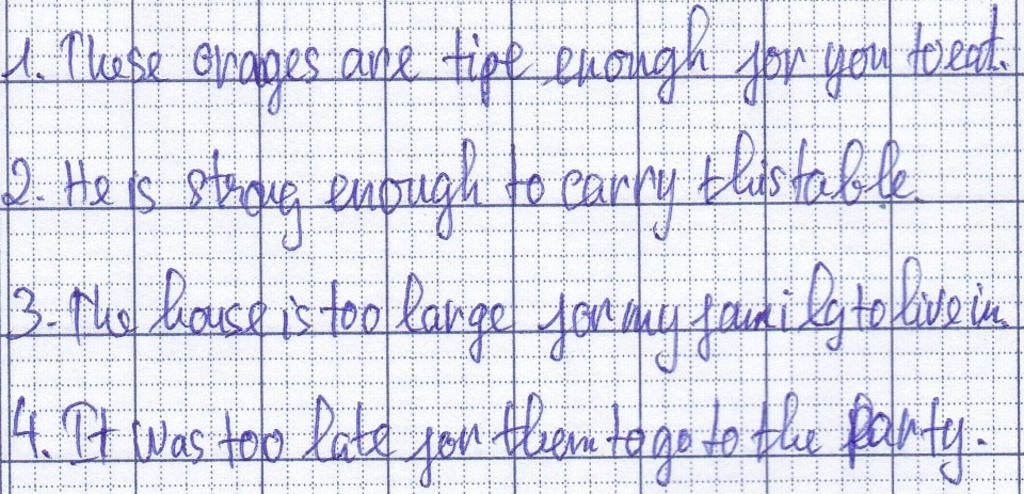 1. These orages are tipe enough for you to eat.
2. He is strong enough to carry this table.
3. The house is too large for my family to live in.
4. It was too late for them to go to the party.